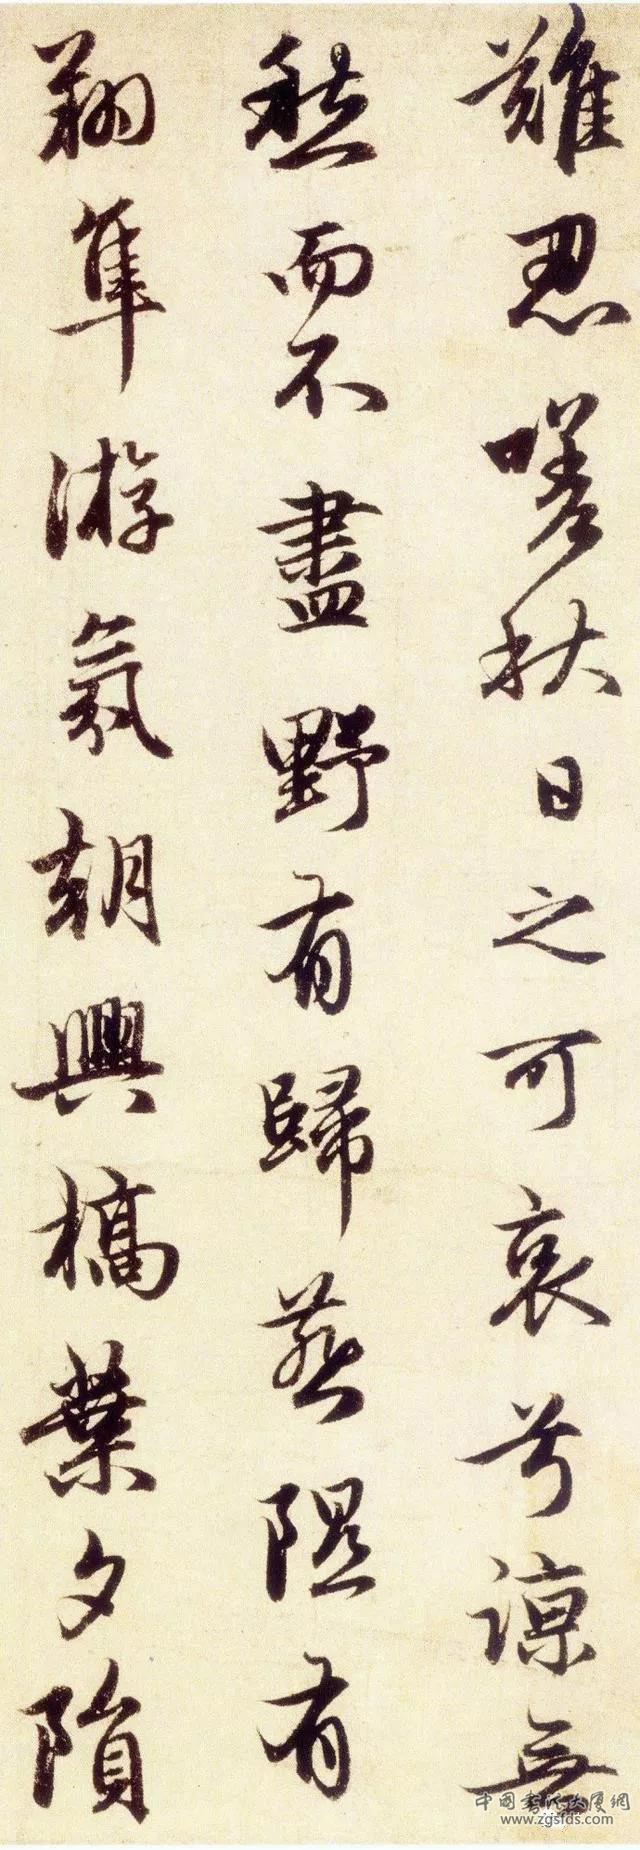 難忍嗟秋日之可哀兮諒無
愁而不盡野有歸燕隰有
翔隼游氛朝興槁葉夕隕
中国书法大厦網
www.zgsfds.com